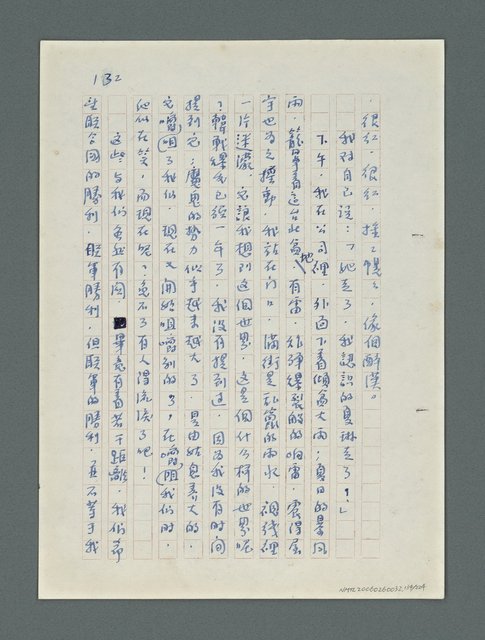 132
，很紅，很紅，搖搖幌幌，像個醉漢。
我對自己說：「她走了，我認識的夏琳走了！」
下午，我在公司裡，外面下着傾盆大雨；夏日的暴風
雨，籠罩着這台北盆地，有雷，炸彈爆裂般的响雷，震得屋
宇也為之撼動，我站在門口，滿街是亂竄的雨水，視線裡
一片迷濛，它讓我想到這個世界，這是個什么樣的世界呢
？韓戰爆發已經一年了，我沒有提到过，因為我沒有時间
提到它；魔鬼的勢力似乎越來越大了，是由姑息養大的，
它嚼咀了我们，現在又開始咀嚼別的了，在嚼咀我们時，
他们在笑，而現在呢？免不了有人得流淚了吧！
这些与我们無關，畢竟有着若干距離，我们希
望联合國的勝利，联軍勝利，但联軍的勝利，並不等于我
NMTL20060260032 134/224